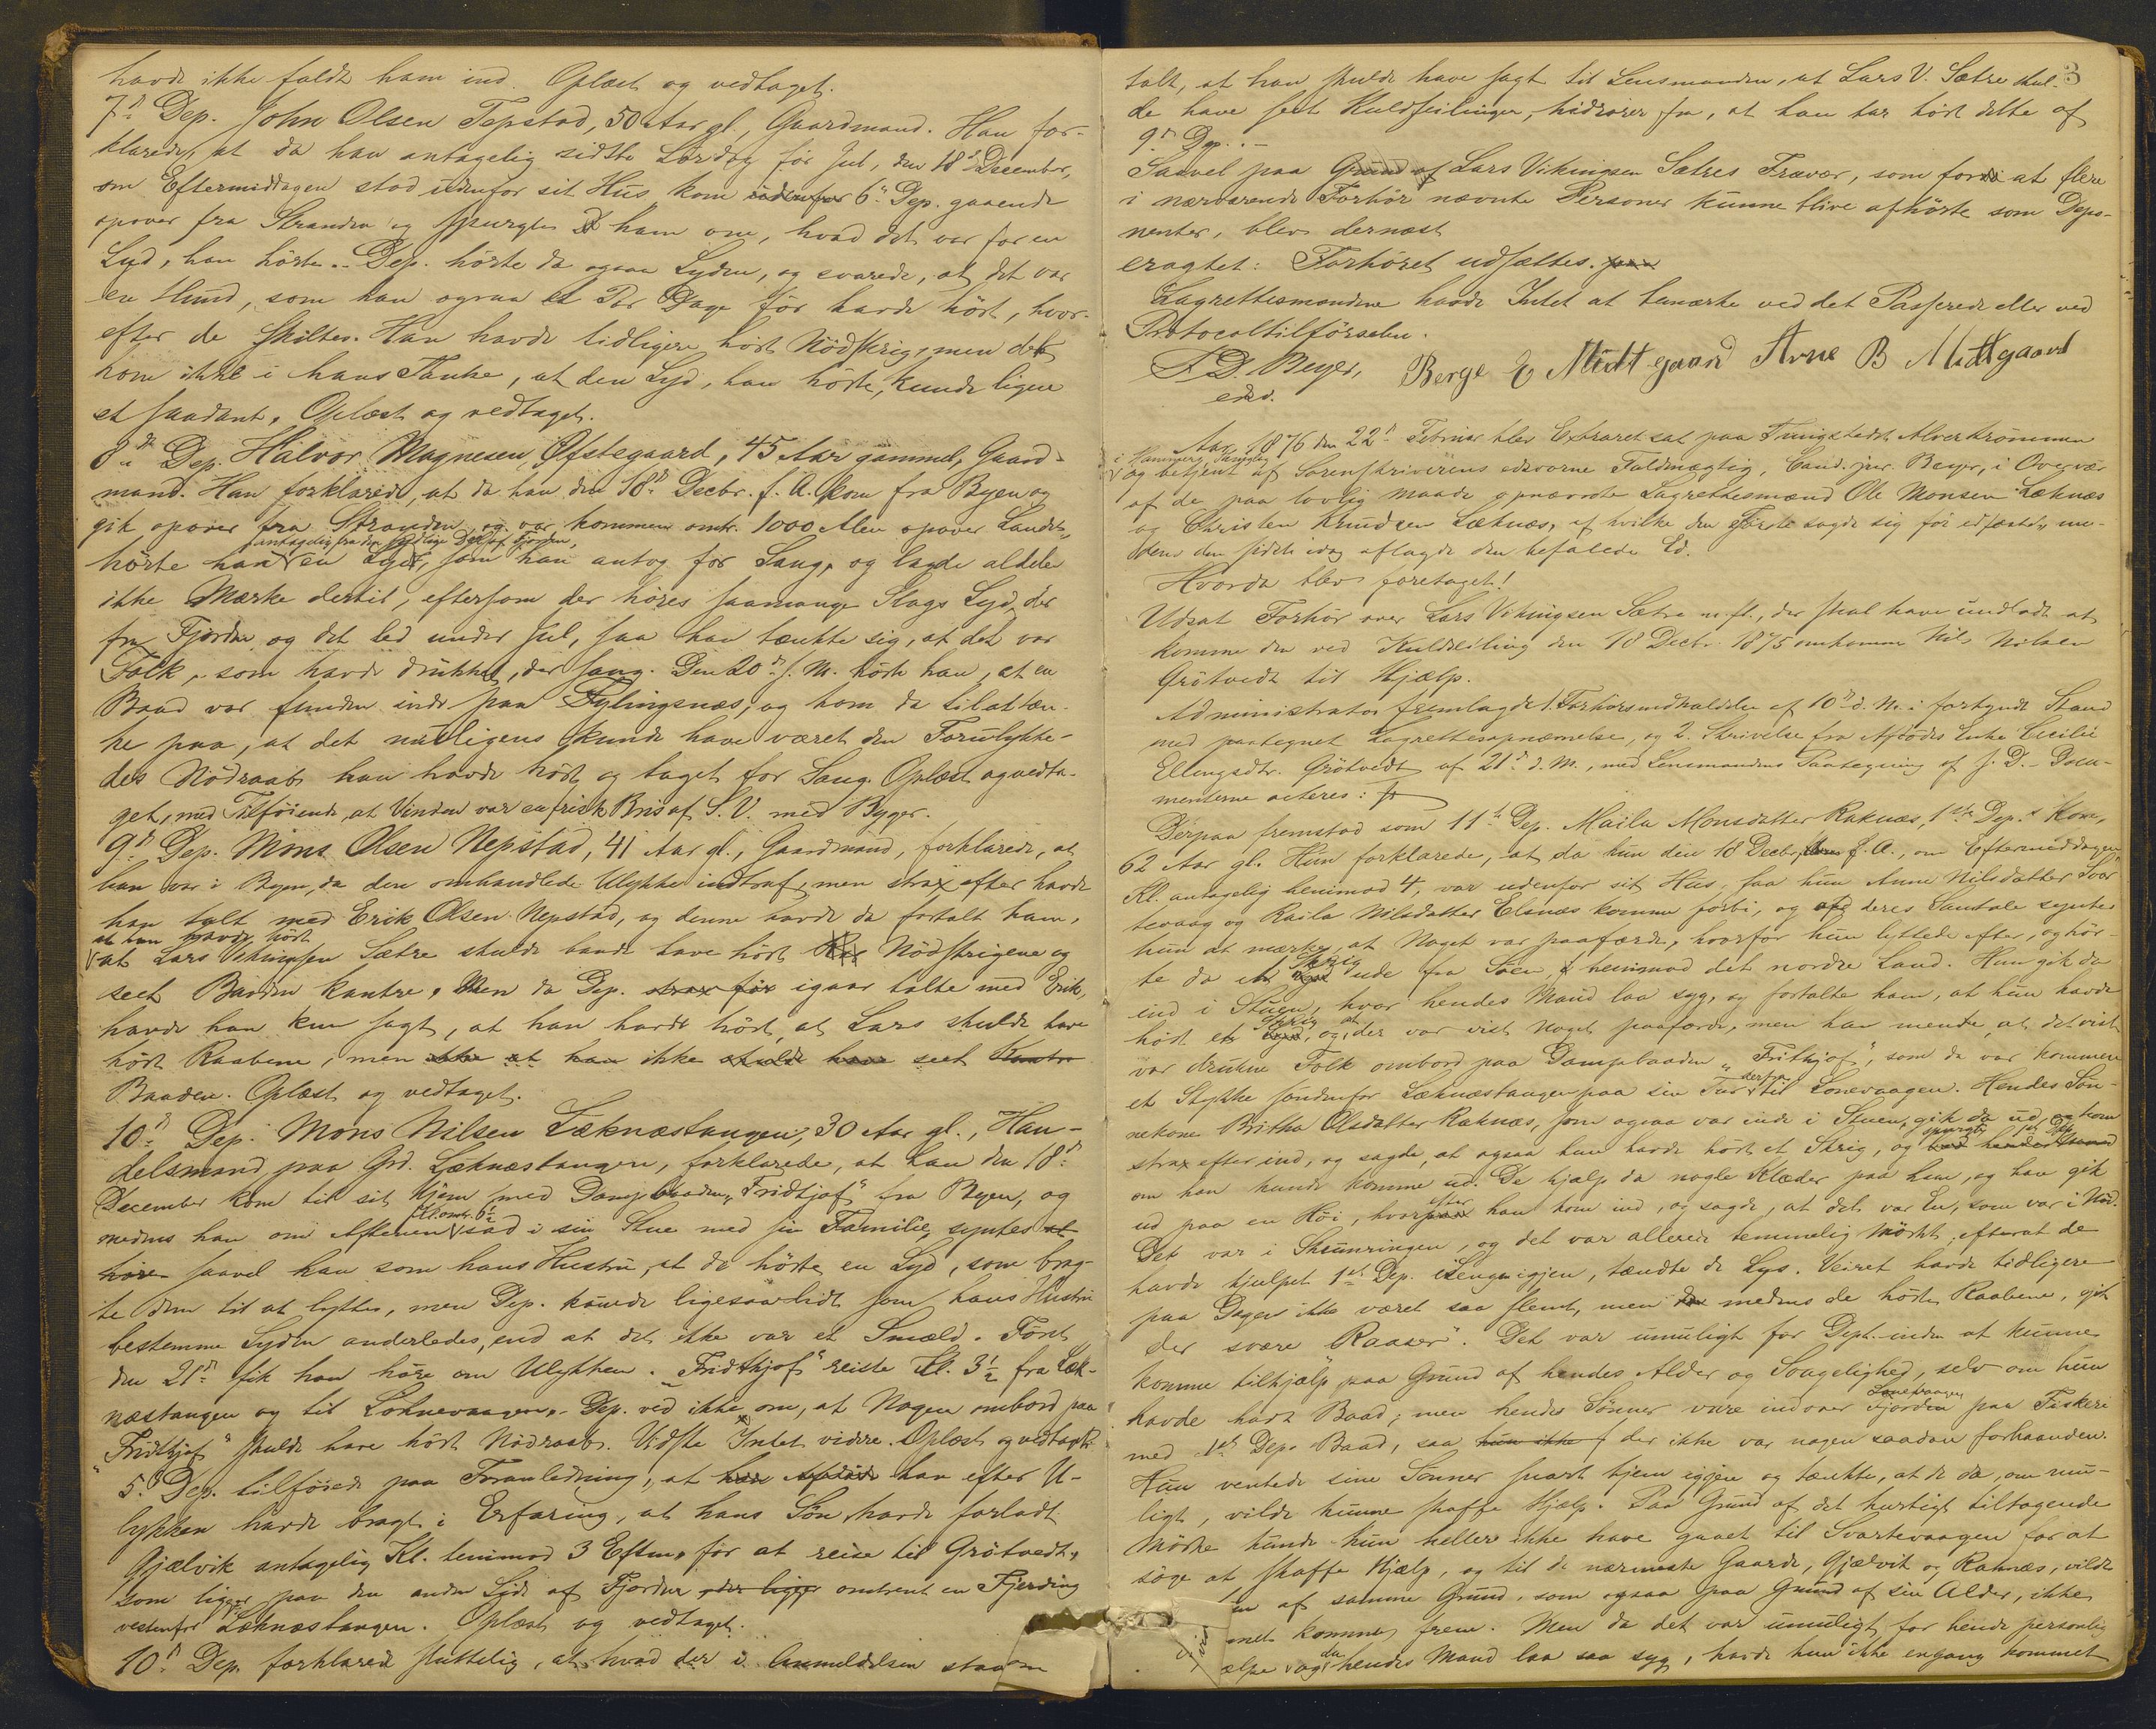 havde ikke faldt ham ind. Oplæst og vedtaget.
7de Dep. John Olsen Tepstad, 50 Aar gl., Gaardmand. Han for-
klarede, at da han antagelig sidste Lørdag før Jul, den 18de December,
om Eftermiddagen stod udenfor sit Hus, kom udenfor 6te Dep. gaaende
opover fra Stranden og spurgte ham om, hvad det var for en
Lyd, han hørte. Dep. hørte da ogsaa Lyden, og svarede, at det var
en Hund, som han ogsaa et Par Dage før havde hørt, hvor-
efter de skiltes. Han havde tidligere hørt Nødskrig, men det
kom ikke i hans Tanke, at den Lyd, han hørte, kunde ligne
et saadant. Oplæst og vedtaget.
8de Dep. Halvor Magnesen Øfstegaard, 45 Aar gammel, Gaard-
mand. Han forklarede, at da han den 18de Decbr. f. A. kom fra Byen og
gik opover fra Stranden og var kommen omtr. 1000 Alen opover Landet,
antagelig fra den sydlige Del af Fjorden,
hørte han en Lyd, som han antog for Sang, og lagde aldeles
ikke Mærke dertil, eftersom der høres saamange Slags Lyd der
fra Fjorden og det led under Jul, saa han tænkte sig, at det var
Folk, som havde drukket, der sang. Den 20de s. M. hørte han, at en
Baad var funden inde paa Fylingsnæs, og kom da til at tæn-
ke paa, at det muligens kunde have været den Forulykke-
des Nødraab han havde hørt og taget for Sang. Oplæst og vedta-
get, med Tilføiende, at Vinden var en frisk Bris af S. V. med Byger.
9de Dep. Mons Olsen Nepstad, 41 Aar gl., Gaardmand, forklarede, at
han var i Byen, da den omhandlede Ulykke indtraf, men strax efter havde
han talt med Erik Olsen Nepstad, og denne havde da fortalt ham,
at han havde hørt
at Lars Vikingsen Sætre skulde baade have hørt Nødskrigene og
seet Baaden kantre. Men da Dep. strax før igaar talte med Erik,
havde han kun sagt, at han havde hørt, at Lars skulde have
hørt Raabene, men ikke at han ikke skulde have seet Kantre
Baaden. Oplæst og vedtaget.
10de Dep. Mons Nilsen Læknæstangen, 30 Aar gl., Han-
delsmand paa Grd. Læknæstangen, forklarede, at han den 18de
December kom til sit Hjem med Dampbaaden "Fridtjof" fra Byen, og
Kl. omtr. 6½
medens han om Aftenen sad i sin Stue med sin Familie, syntes at
høre saavel han som hans Hustru, at de hørte en Lyd, som brag-
te dem til at lytte, men Dep. kunde ligesaalidt som hans Hustru
bestemme Lyden anderledes, end at det ikke var et Smæld. Først
den 21de fik han høre om Ulykken. "Fridthjof" reiste Kl. 3½ fra Læk-
næstangen og til Lohnevaagen. Dep. ved ikke om, at Nogen ombord paa
"Fridthjof" skulde have hørt Nødraab. Vidste Intet videre. Oplæst og vedtaget.
5te Dep. tilføiede paa Foranledning, at han efter U-
lykken havde bragt i Erfaring, at hans Søn havde forladt
Gjælvik antagelig Kl. henimod 3 Eftm. for at reise til Grøtvedt,
som ligger paa den anden Side af Fjorden, der ligger omtrent en Fjerding
vestenfor Læknæstangen. Oplæst og vedtaget.
10de Dep. forklarede sluttelig, at hvad der i Anmeldelsen staar om
3
talt, at han skulde have sagt til Lensmanden, at Lars V. Sætre skul-
de have seet Kuldseilingen, hidrører fra, at han har hørt dette af
9de Dep. —
Saavel paa Grund af Lars Vikingsen Sætres Fravær, som fordi at flere
i nærværende Forhør nævnte Personer kunne blive afhørte som Depo-
nenter, blev dernæst
eragtet: Forhøret udsættes. paa
Lagrettesmændene havde Intet at bemærke ved det Passerede eller ved
Protocoltilførselen.
F. D. Beyer, Berge E Midtgaard Arne B Midtgaard
edsv.
Aar 1876 den 22de Februar blev Extraret sat paa Thingstedet Alverstrømmen
i Hammers Thinglag
og betjent af Sorenskriverens edsvorne Fuldmægtig, Cand. jur. Beyer, i Overvær
af de paa lovlig Maade opnævnte Lagrettesmænd Ole Monsen Læknæs
og Christen Knudsen Læknæs, af hvilke den Første sagde sig før edfæstet, me-
dens den sidste idag aflagde den befalede Ed.
Hvorda blev foretaget:
Udsat Forhør over Lars Vikingsen Sætre m. fl., der skal have undladt at
komme den ved Kuldseiling den 18 Decbr. 1875 omkomne Nils Nilsen
Grøtvedt til Hjælp.
Administrator fremlagde 1. Forhørsindkaldelse af 10de d. M. i forkyndt Stand
med paategnet Lagrettesopnævnelse, og 2. Skrivelse fra Afdødes Enke Cecilie
Ellingsdtr. Grøtvedt af 21de d. M., med Lensmandens Paategning af s. D. Docu-
menterne acteres:
Derpaa fremstod som 11te Dep. Maila Monsdatter Raknæs, 1ste Dep.s Kone,
62 Aar gl. Hun forklarede, at da hun den 18 Decbr. f. A., om Eftermiddagen
Kl. antagelig henimod 4, var udenfor sit Hus, saa hun Anne Nilsdatter Svar-
tevaag og Raila Nilsdatter Elsnæs komme forbi, og af deres Samtale syntes
hun at mærke, at Noget var paafærde, hvorfor hun lyttede efter, og hør-
Skrig
te da et Lyd ude fra Søen, henimod det nordre Land. Hun gik da
ind i Stuen, hvor hendes Mand laa syg, og fortalte ham, at hun havde
Skrig at
hørt et Lyd, og der var vist Noget paafærde, men han mente, at det vist
var drukne Folk ombord paa Dampbaaden "Frithjof", som da var kommen
derfra
et Stykke søndenfor Læknæstangen paa sin Tur til Lonevaagen. Hendes Søn-
nekone Britha Olsdatter Raknæs, som ogsaa var inde i Stuen, gik da ud, og kom
spurgte 1ste Dep.
strax efter ind, og sagde, at ogsaa hun havde hørt et Skrig, og bad hendes Mand
om han kunde komme ud. De hjalp da nogle Klæder paa ham, og han gik
efter
ud paa en Høi, hvorpaa han kom ind, og sagde, at det var En, som var i Nød.
Det var i Skumringen, og det var allerede temmelig Mørkt; efterat de
havde hjulpet 1ste Dep. i Seng igjen, tændte de Lys. Veiret havde tidligere
paa Dagen ikke været saa slemt, men da medens de hørte Raabene, gik
der svære "Raaser". Det var umuligt for Dept.inden at kunne
komme tilhjælp paa Grund af hendes Alder og Svagelighed, selv om hun
Lonevaagen
havde havt Baad; men hendes Sønner vare indover Fjorden paa Fiskeri
med 1ste Dep.s Baad, saa hun ikke der ikke var nogen saadan forhaanden.
Hun ventede sine Sønner snart hjem igjen og tænkte, at de da, om mu-
ligt, vilde kunne skaffe Hjælp. Paa Grund af det hurtigt tiltagende
Mørke kunde hun heller ikke have gaaet til Svartevaagen for at
søge at skaffe Hjælp, og til de nærmeste Gaarde, Gjælvik og Raknæs, vilde
af samme Grund, som ogsaa paa Grund af sin Alder, ikke
komme frem. Men da det var umuligt for hende personlig
da
og hendes Mand laa saa syg, havde hun ikke engang kommet